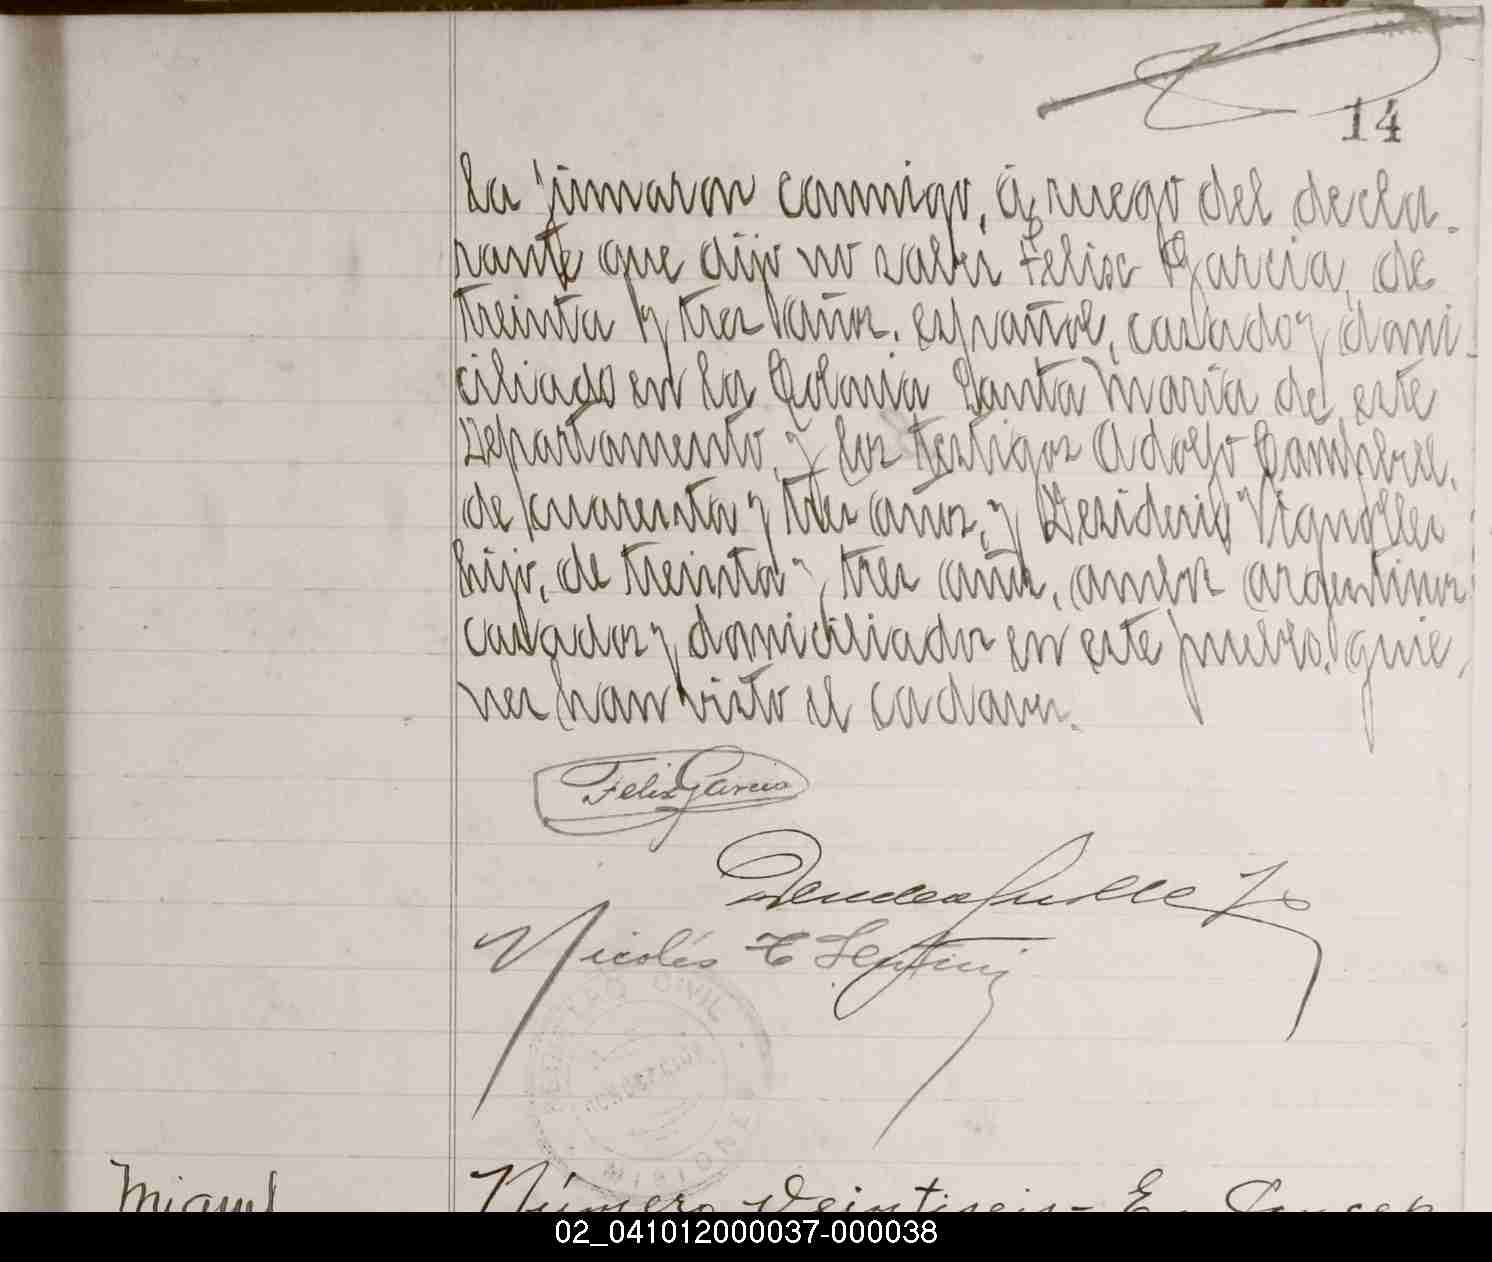 14
la firmaron conmigo, á ruego del decla-
rante que dijo no saber Felix Garcia, de
treinta y tres años, español, casado y domi-
ciliado en la Colonia Santa Maria de este
Departamento, y los testigos Adolfo
de cuarenta y tres años, y Desiderio
hijo, de treinta y tres años, ambos argentinos
casados y domiciliados en este pueblo, quie-
nes han visto el cadaver.
Felix Garcia
Nicolás
REGISTRO CIVIL
MISIONES
Miguel
Número veintiseis- En Concep
02_041012000037-000038